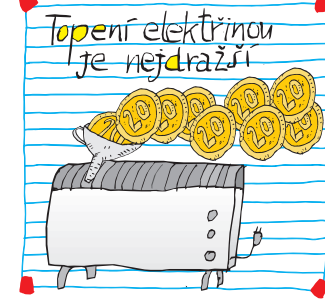 Topení elektřinou
je nejdražší
20 20 20 20 20 20 20 20